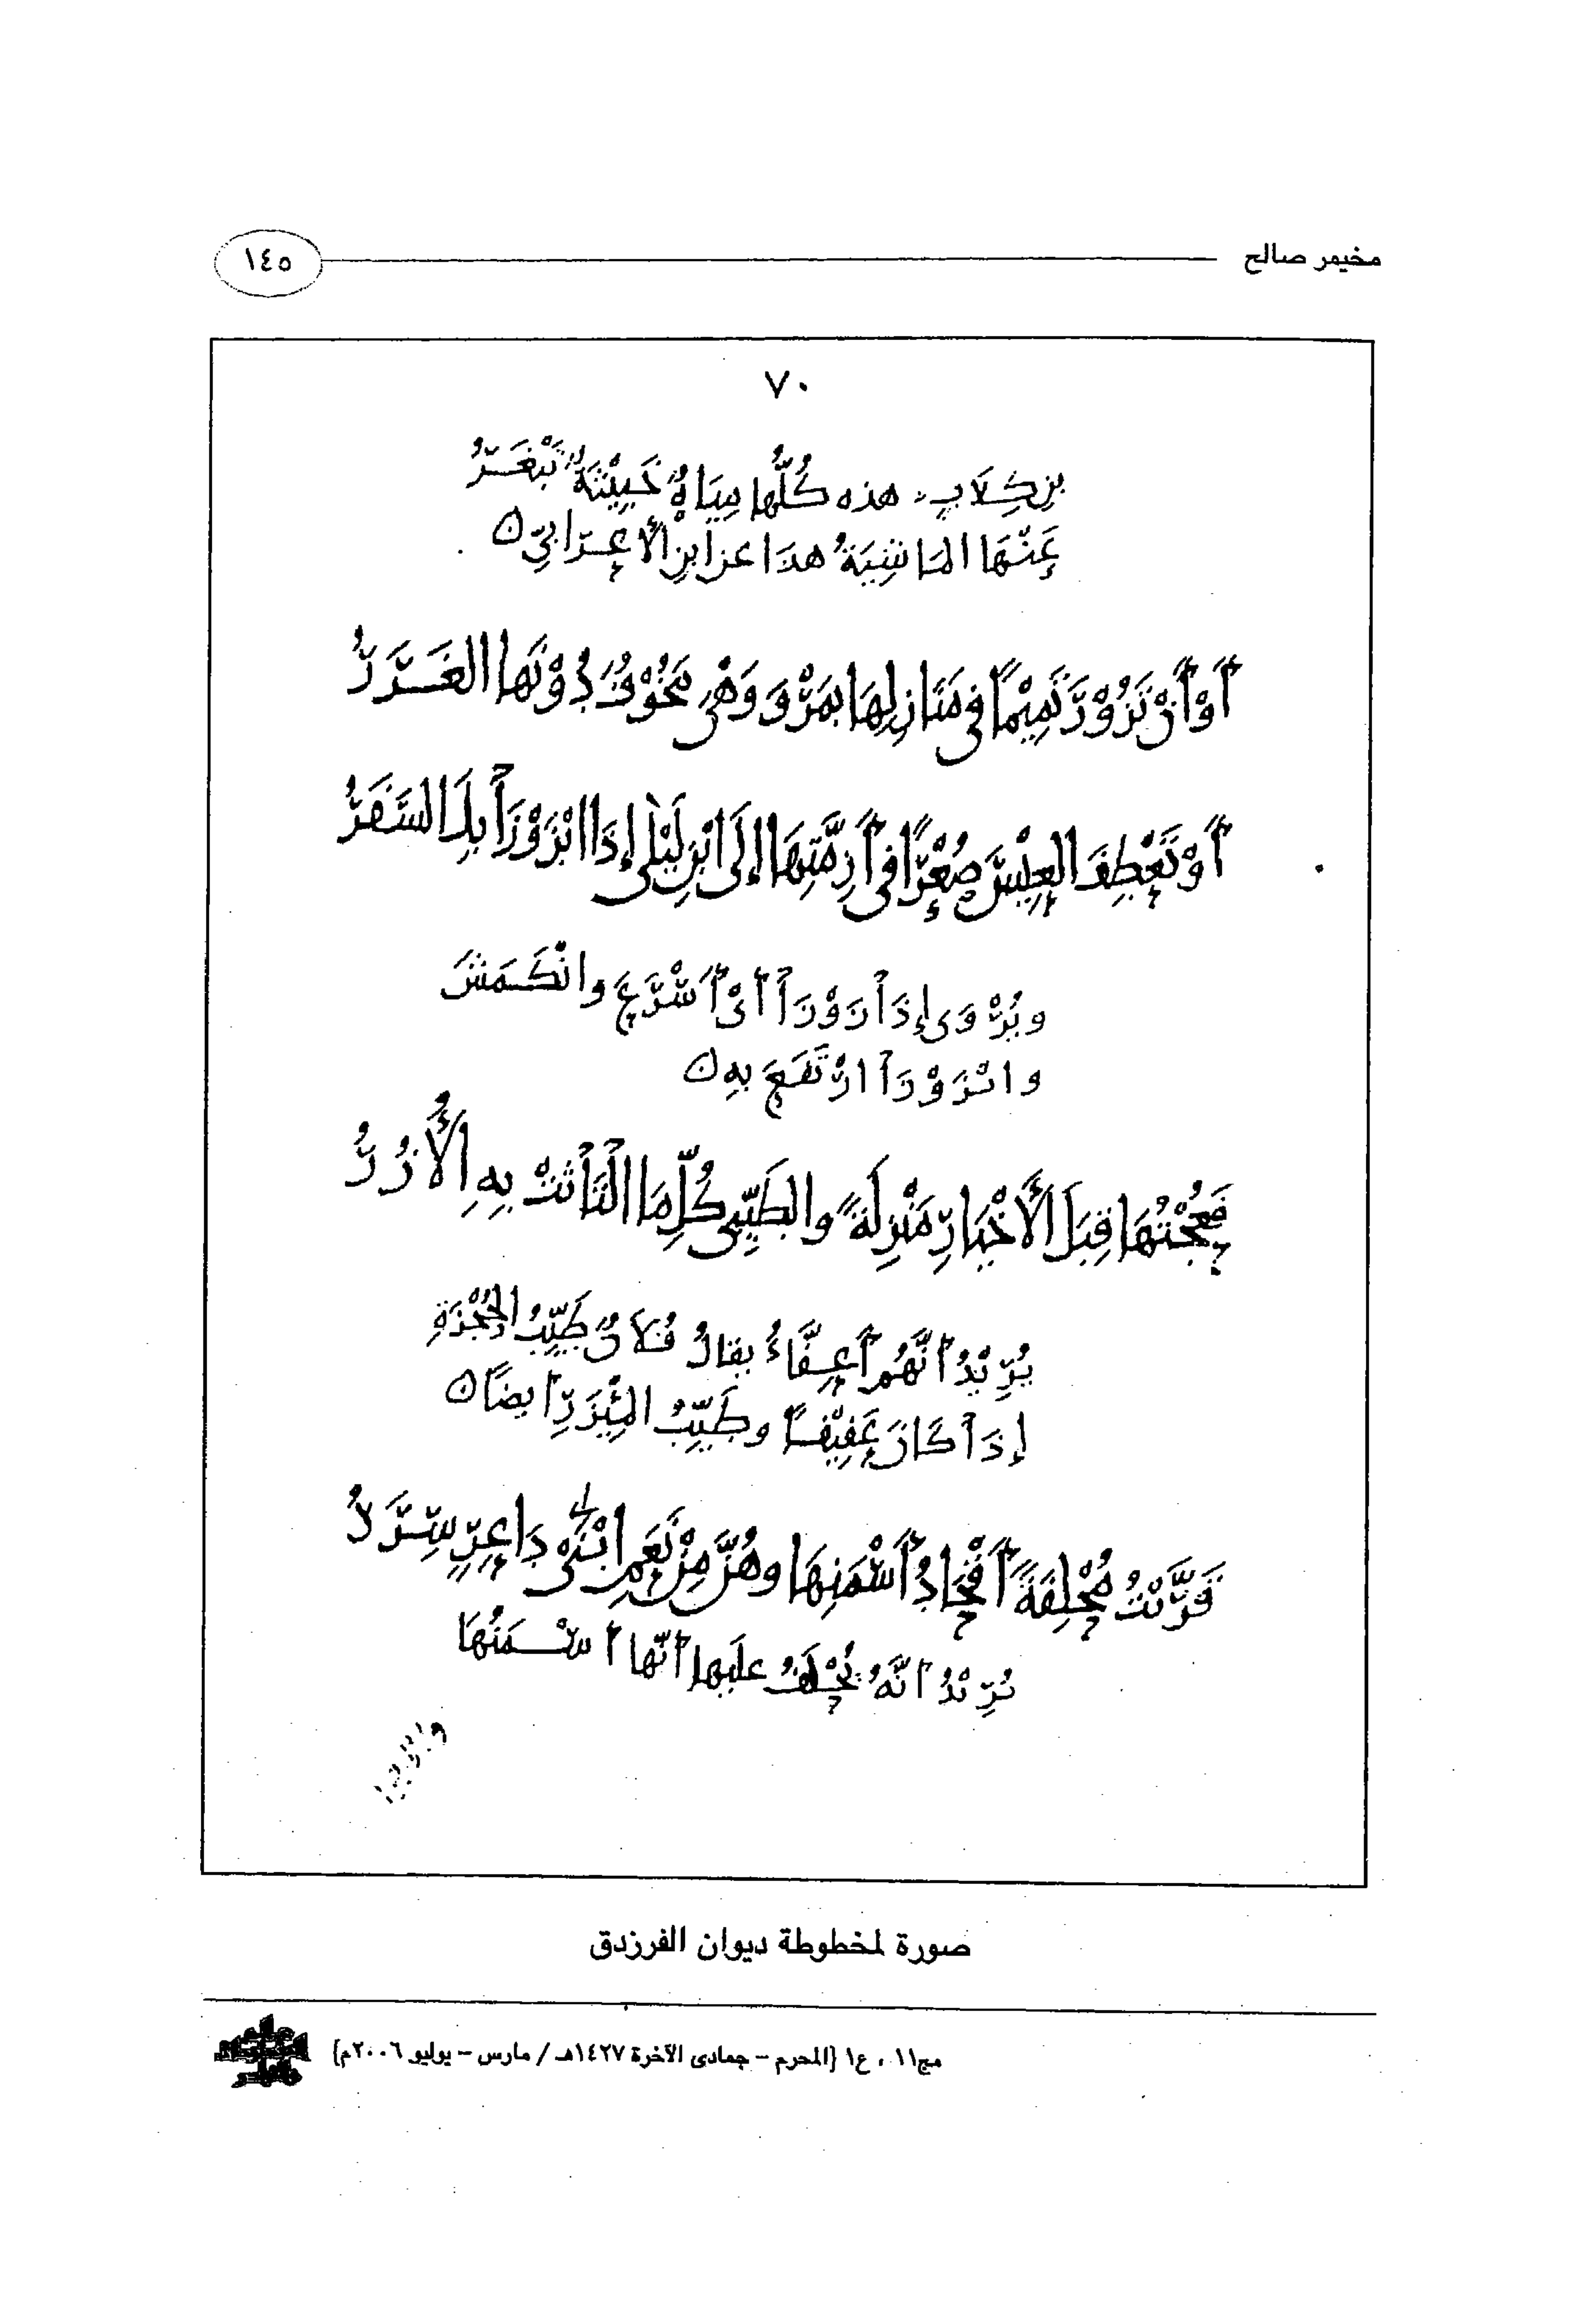 مخيمر صالح
١٤٥
٧٠
بن كِلَابٍ. هذه كُلُّها مِيَاهٌ خَبِيْثَةٌ تَبْغَرُ
عَنْهَا المَاشِيَةُ هذَا عن ابنِ الأَعْرَابِيِّ ه
أَوْ أَنْ تَزُوْرَ تَمِيْمًا فِي مَنَازِلِهَا بِمَرْوَ وَهْيَ مَخُوْفٌ دُوْنَهَا الغَرَرُ
أَوْ تَعْطِفَ العِيْسَ صُعْرًا فِي أَزِمَّتِهَا إِلَى ابْنِ لَيْلَى إِذَا ابْزَوْزَأَ بِكَ السَّفَرُ
ويُرْوَى إِذَا زَوْزَأَ أَىْ أَسْرَعَ وانْكَمَشَ
وابْزَوْزَأَ ارْتَفَعَ بِهِ ه
فَعُجْتُهَا قِبَلَ الأَخْيَارِ مَنْزِلَةً والطَّيِّبِى كُلِّ مَا الْتَاثَتْ بِهِ الأُزُرُ
يُرِيْدُ أَنَّهُم أَعِفَّاءُ يقالُ فُلَانٌ طَيِّبُ الحُجْزَةِ
إِذَا كَانَ عَفِيْفًا وطَيِّبُ المِئْزَرِ أَيضًا ه
قَرَّبْتُ مُحْلِفَةً أَقْحَادُ أَسْمَنِهَا وهُنَّ مِنْ نَعَمِ ابْنَىْ دَاعِرٍ سِرَرُ
يُرِيْدُ أَنَّهُ يُحْلَفُ عليها أَنّها أَسْمَنُهَا
صورة لمخطوطة ديوان الفرزدق
مج١١ ، ع١ (المحرم - جمادى الآخرة ١٤٢٧هـ / مارس - يوليو ٢٠٠٦م)